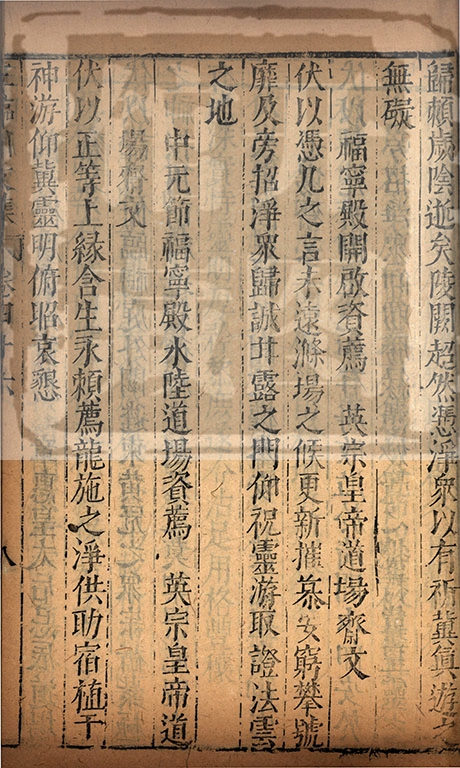 歸賴歲陰逝矣陵闕超然憑淨眾以有祈冀眞遊之
無礙
福寧殿開啟資薦 英宗皇帝道場齋文
伏以憑几之言未遠滌場之候更新摧慕 窮攀號
靡及旁招淨眾歸誠甘露之門仰祝靈游取證法雲
之地
中元節福寧殿水陸道場資薦 英宗皇帝道
場齋文
伏以正等上緣含生永賴薦龍施之淨供助宿植于
神游仰冀靈明俯昭哀懇
臨川文集 卷四十六 八